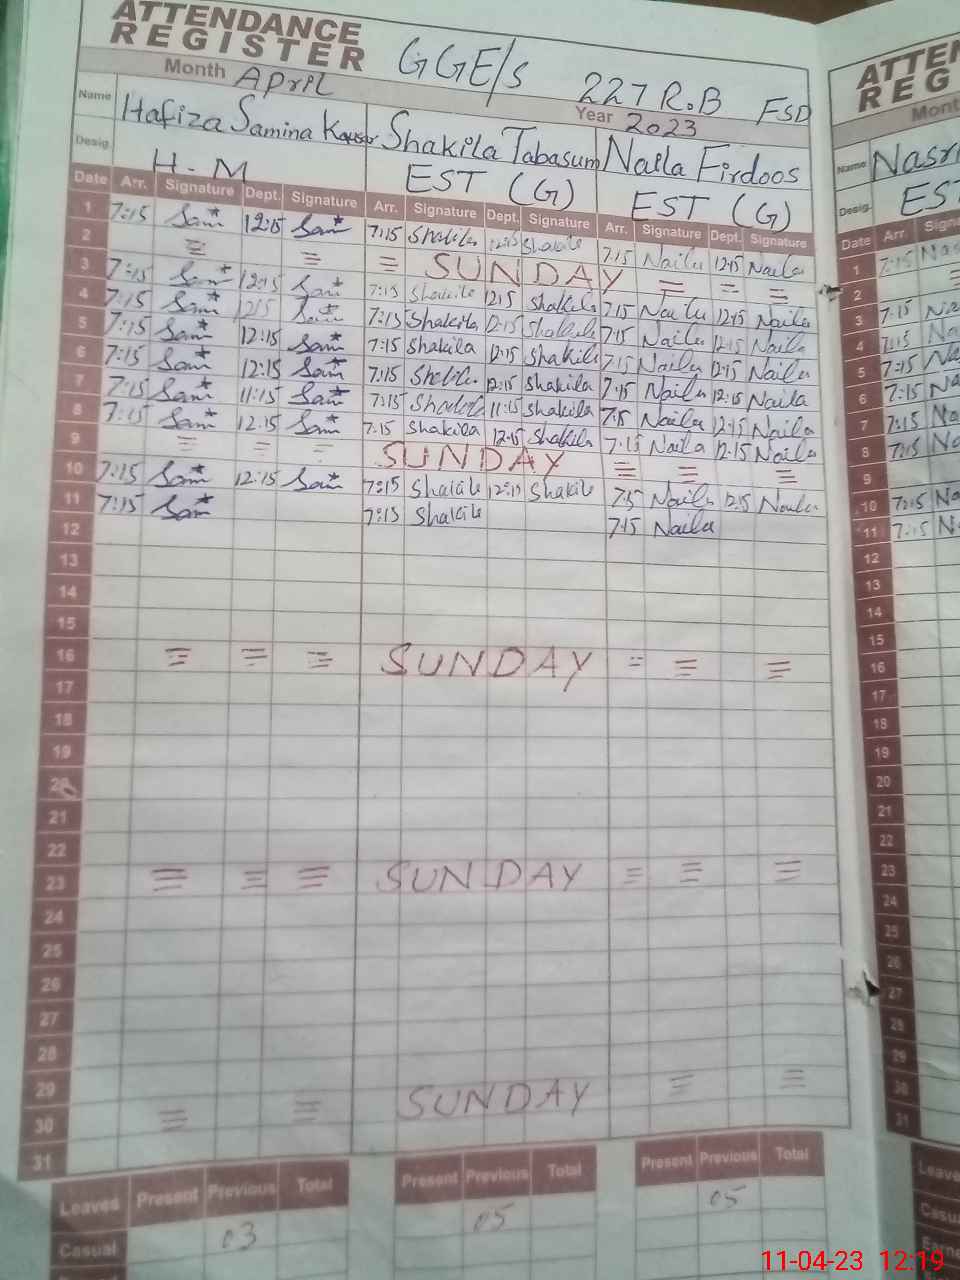 ATTENDANCE REGISTER GGE/s 227 R.B FSD
Month April Year 2023
Name Hafiza Samina Kausar Shakila Tabasum Naila Firdoos
Desig. H.M EST (G) EST (G)
Date Arr. Signature Dept. Signature Arr. Signature Dept. Signature Arr. Signature Dept. Signature
1 7:15 Sam 12:15 Sam 7:15 Shakila 12:15 Shakila 7:15 Naila 12:15 Naila
2 = = = SUNDAY = = =
3 7:15 Sam 12:15 Sam 7:15 Shakila 12:15 Shakila 7:15 Naila 12:15 Naila
4 7:15 Sam 12:15 Sam 7:15 Shakila 12:15 Shakila 7:15 Naila 12:15 Naila
5 7:15 Sam 12:15 Sam 7:15 Shakila 12:15 Shakila 7:15 Naila 12:15 Naila
6 7:15 Sam 12:15 Sam 7:15 Shakila 12:15 Shakila 7:15 Naila 12:15 Naila
7 7:15 Sam 11:15 Sam 7:15 Shakila 11:15 Shakila 7:15 Naila 12:15 Naila
8 7:15 Sam 12:15 Sam 7:15 Shakila 12:15 Shakila 7:15 Naila 12:15 Naila
9 = = = SUNDAY = = =
10 7:15 Sam 12:15 Sam 7:15 Shakila 12:15 Shakila 7:15 Naila 12:15 Naila
11 7:15 Sam 7:15 Shakila 7:15 Naila
12
13
14
15
16 = = = SUNDAY = = =
17
18
19
20
21
22
23 = = = SUNDAY = = =
24
25
26
27
28
29
30 = = SUNDAY = =
31
Leaves Present Previous Total Present Previous Total Present Previous Total
Casual 03 05 05
ATTEN
REG
Mont
Name Nasr
Desig. ES
Date Arr. Sign
1 7:15 Nas
2
3 7:15 Na
4 7:15 Na
5 7:15 Na
6 7:15 Na
7 7:15 Na
8 7:15 Na
9
10 7:15 Na
11 7:15 N
12
13
14
15
16
17
18
19
20
21
22
23
24
25
26
27
28
29
30
31
Leave
Casu
Earne
11-04-23 12:19